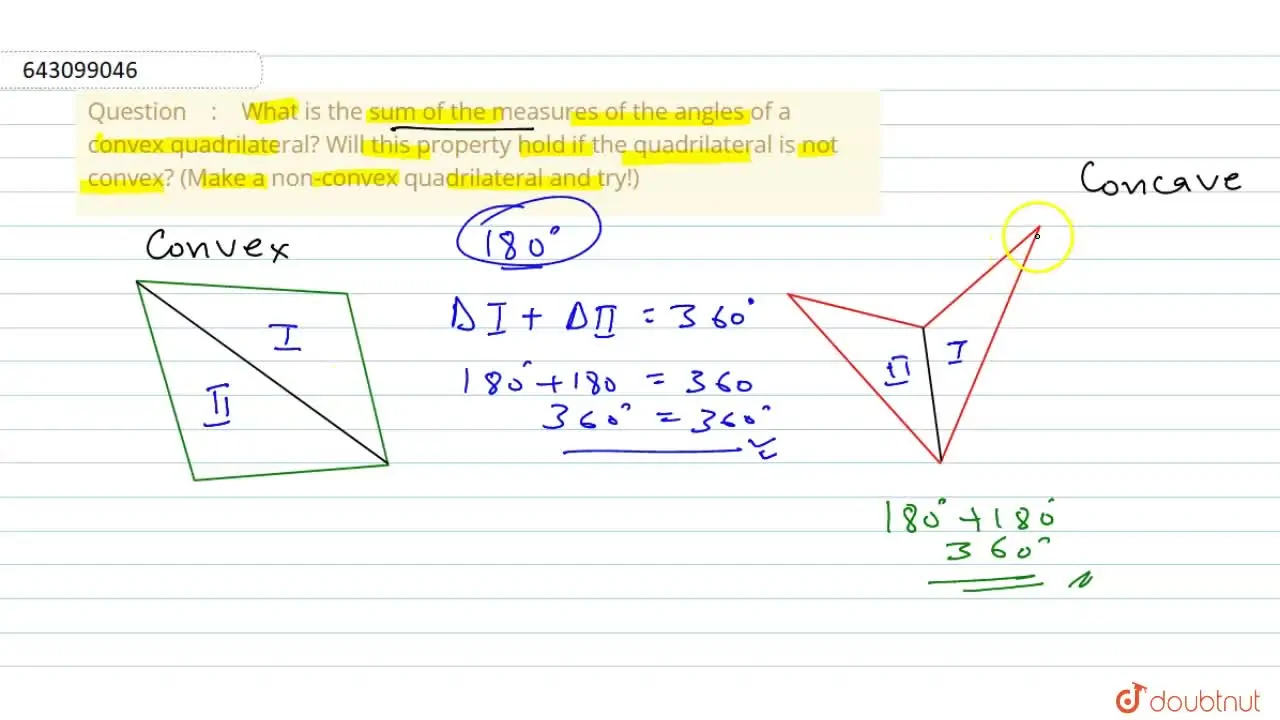 643099046
Question : What is the sum of the measures of the angles of a
convex quadrilateral? Will this property hold if the quadrilateral is not
convex? (Make a non-convex quadrilateral and try!)
Concave
Convex
180°
I
II
Δ I + Δ II = 360°
180° + 180 = 360
360° = 360°
II
I
180° + 180°
360°
doubtnut